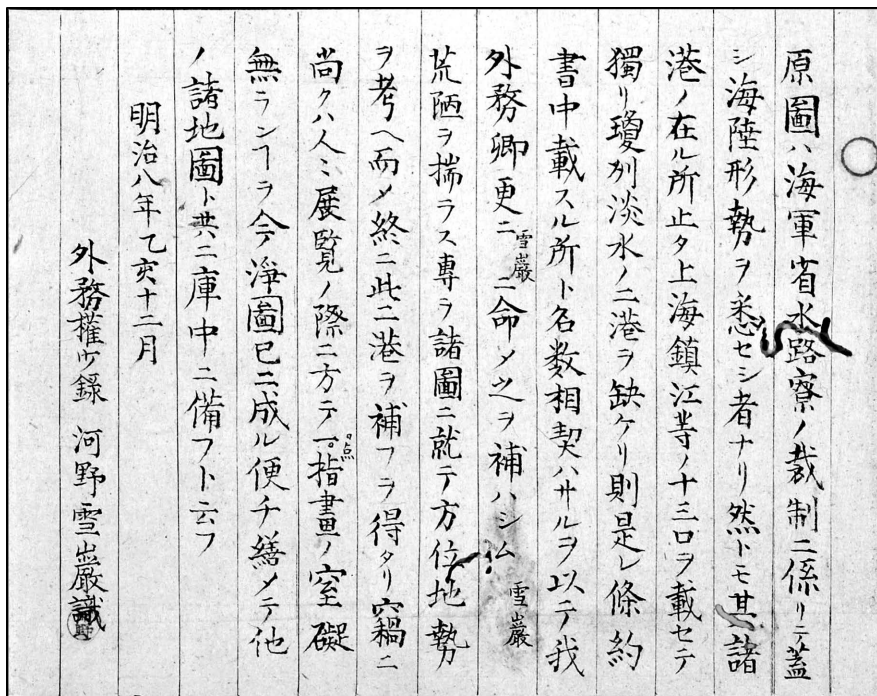 原圖ハ海軍省水路寮ノ裁制ニ係リテ蓋
シ海陸形勢ヲ悉セシ者ナリ然トモ其諸
港ノ在ル所止タ上海鎮江等ノ十三口ヲ載セテ
獨リ瓊州淡水ノ二港ヲ缺ケリ則是レ條約
書中載スル所ト名数相契ハサルヲ以テ我
外務卿更ニ雪巖ニ命メ之ヲ補ハシム雪巖
荒陋ヲ揣ラス専ラ諸圖ニ就テ方位地勢
ヲ考ヘ而メ終ニ此二港ヲ補フヲ得タリ竊ニ
尚クハ人ミ展覧ノ際ニ方テ一点指畫ノ窒礙
無ランヿヲ今浄圖已ニ成ル便チ繕メテ他
ノ諸地圖ト共ニ庫中ニ備フト云フ
明治八年乙亥十二月
外務權少録 河野雪巖識